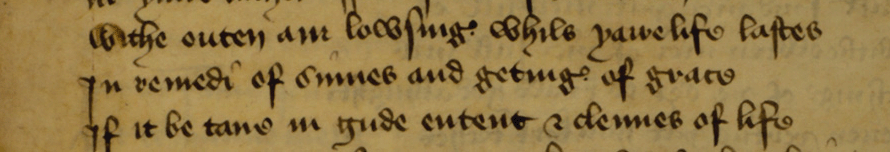 withe outen ani lowsing whils yaire life lastes
In remedi of sinnes and geting of grace
If it be tane in gude entent & clennes of life